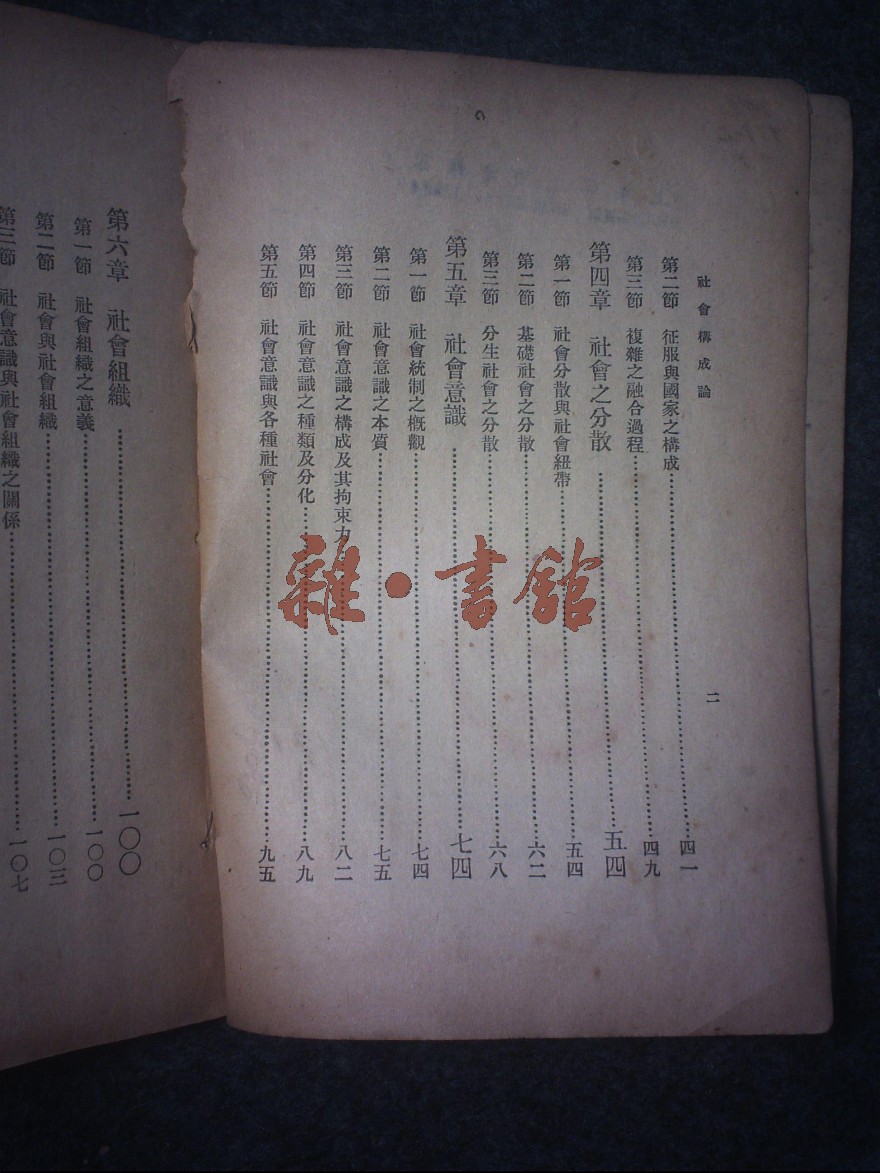 社會構成論
第二節 征服與國家之構成……四一
第三節 複雜之融合過程……四九
第四章 社會之分散……五四
第一節 社會分散與社會紐帶……五四
第二節 基礎社會之分散……六二
第三節 分生社會之分散……六八
第五章 社會意識……七四
第一節 社會統制之概觀……七四
第二節 社會意識之本質……七五
第三節 社會意識之構成及其拘束力……八二
第四節 社會意識之種類及分化……八九
第五節 社會意識與各種社會……九五
二
第六章 社會組織……一〇〇
第一節 社會組織之意義……一〇〇
第二節 社會與社會組織……一〇三
第三節 社會意識與社會組織之關係……一〇七
雜·書館